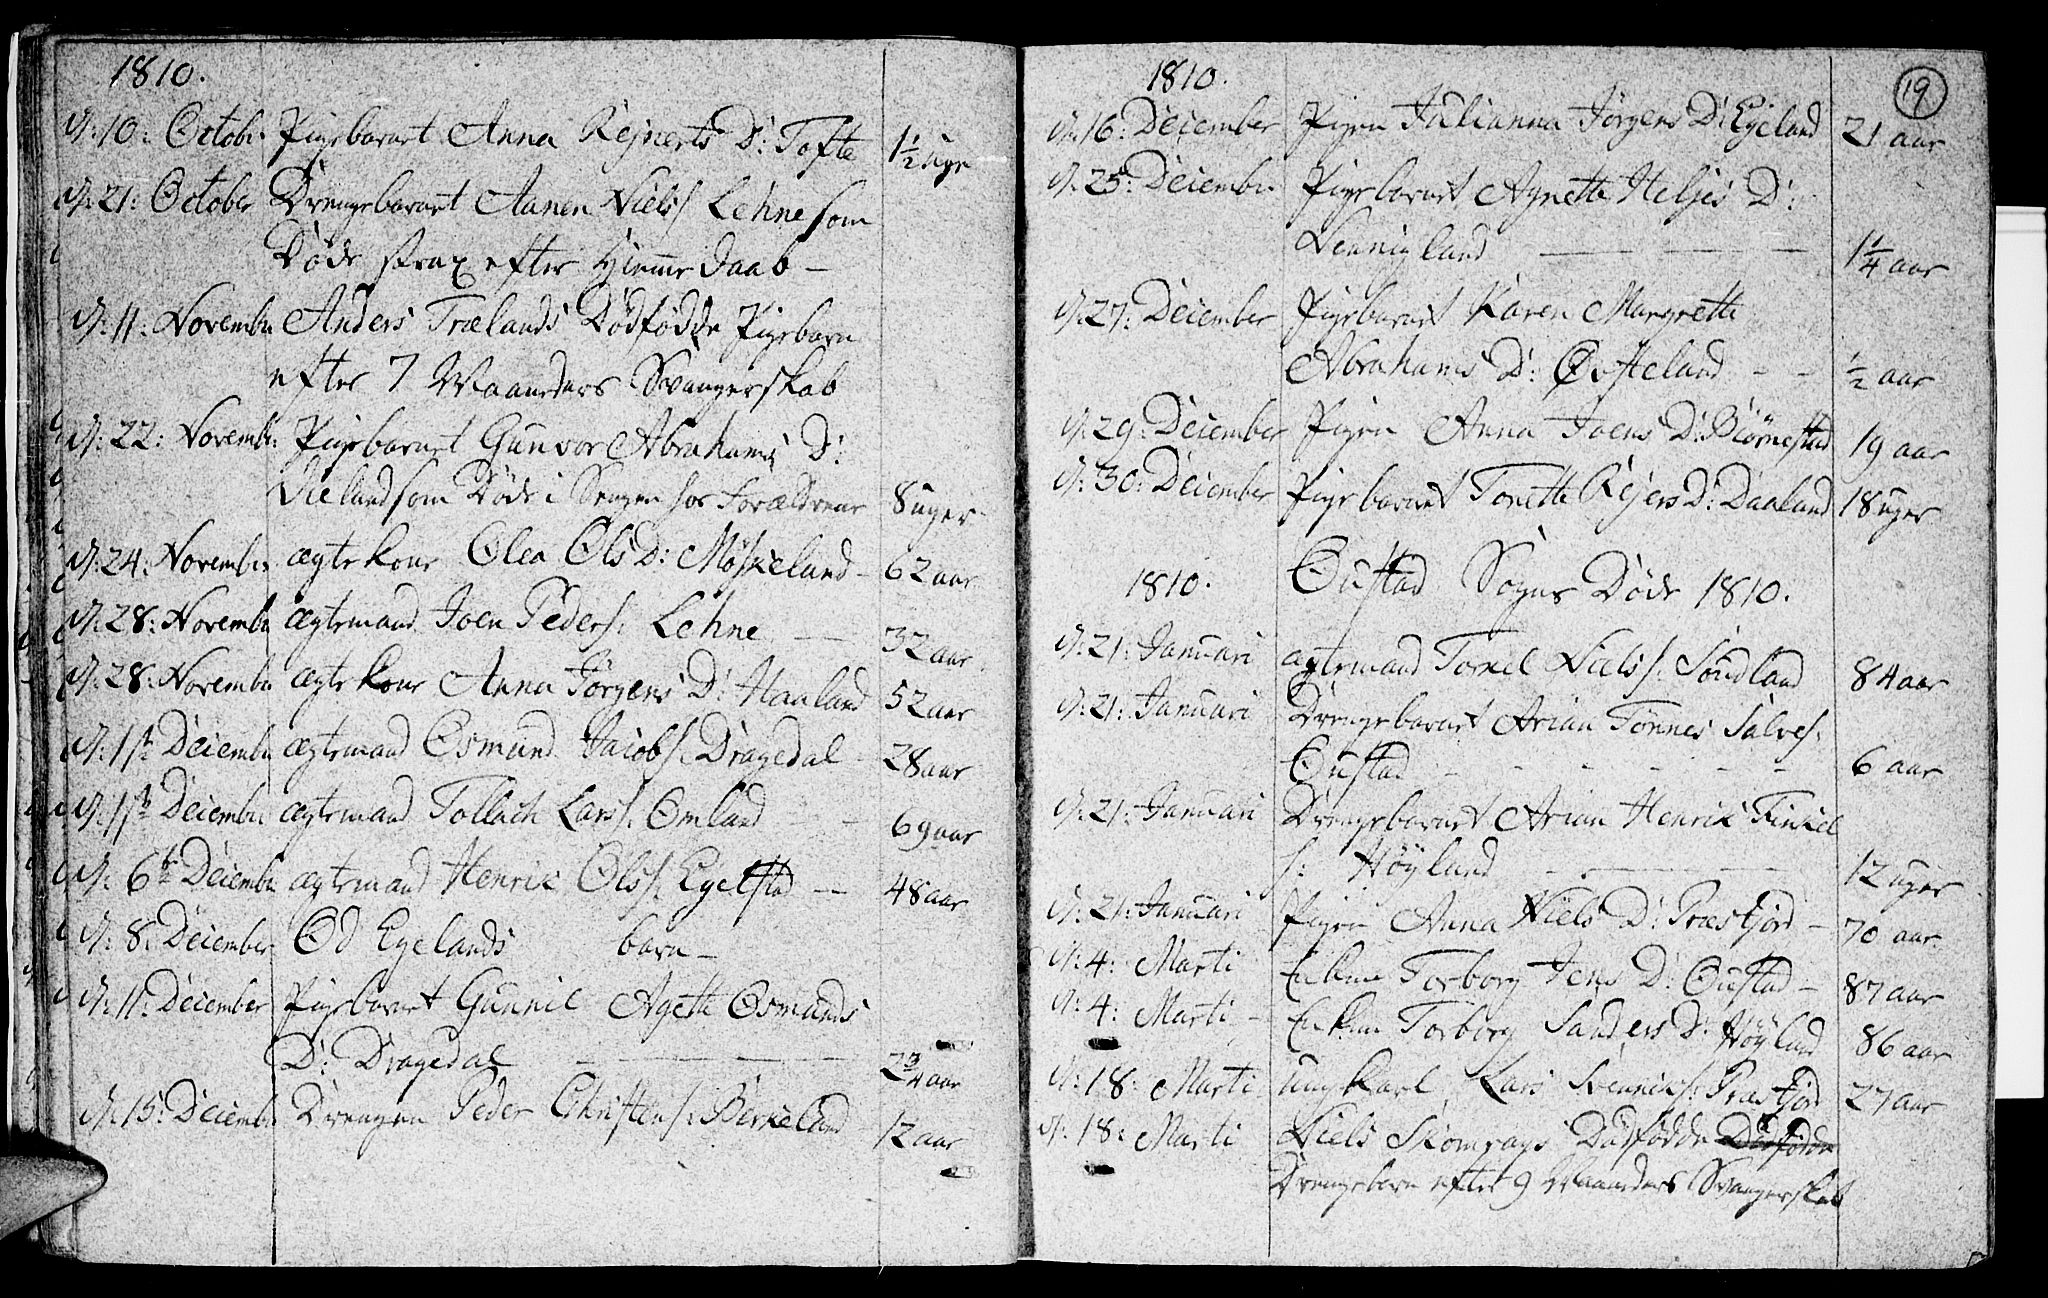 1810.
d: 10: Octobr Pigebarnet Anna Rejnerts D: Tofte 1½ uge
d: 21: October Drengebarnet Aanen Niels s: Lehne som
Døde strax efter Hjemme daab –
d: 11: Novembr Anders Trælands Dödfödde Pigebarn
efter 7 Maaneders Svangerskab
d: 22: Novembr Pigebarnet Gunvor Abrahams D:
som Døde i Sengen hos Forældrene 8 uger
d: 24: Novembr ægte kone Olea Ols D: Möskeland – 62 aar
d: 28: Novembr ægtemand Joen Peders: Lehne — 32 aar
d: 28: Novembr ægte kone Anna Jørgens D: Hauland 52 aar
d: 1ste Decembr ægtemand Osmund Jacobs: Dragedal 28 aar
d: 1ste Decembr ægtemand Tollach Lars s: Omland – – 69 aar
d: 6te Decembr ægtemand Henrik Ols s: Egelstad — 48 aar
d: 8: December Od Egelands barn –
d: 11: December Pigebarnet Gunnil Agethe Osmunds
D: Dragedal — — — 2¾ aar
d: 15: Decembr Drengen Peder Christens: Birkeland 12 aar
19
1810.
d: 16: December Pigen Julianna Jörgens D: Egeland 21 aar
d: 25: Decembr Pigebarnet Agnethe Heljes D:
Lenningland — — — 1¼ aar
d: 27: December Pigebarnet Karen Margrethe
Abrahams D: Øisteland – – ½ aar
d: 29: December Pigen Anna Joens D: Biörnestad 19 aar
d: 30: December Pigebarnet Tonette Rejers D: Daaland 18 uger
1810. Oustad Sogns Döde 1810.
d: 21: Januari ægtemand Torkel Niels s: Söndland 84 aar
d: 21: Januari Drengebarnet Arian Tönnes Salves:
Oustad – – – – – – 6 aar
d: 21: Januari Drengebarnet Arian Henrik Tinkel
s: Höyland — — — 12 uger
d: 21: Januari Pigen Anna Niels D: Præstjord – 70 aar
d: 4: Marti Enken Torborg Jens D: Oustad – 87 aar
d: 4: Marti – Enken Torborg Sanders D: Höyland 86 aar
d: 18: Marti ung karl Lars Svenniks: Præstjord 27 aar
d: 18: Marti Niels Skomrags Dödfödde
Drengebarn efter 9 Maaneders Svangerskab